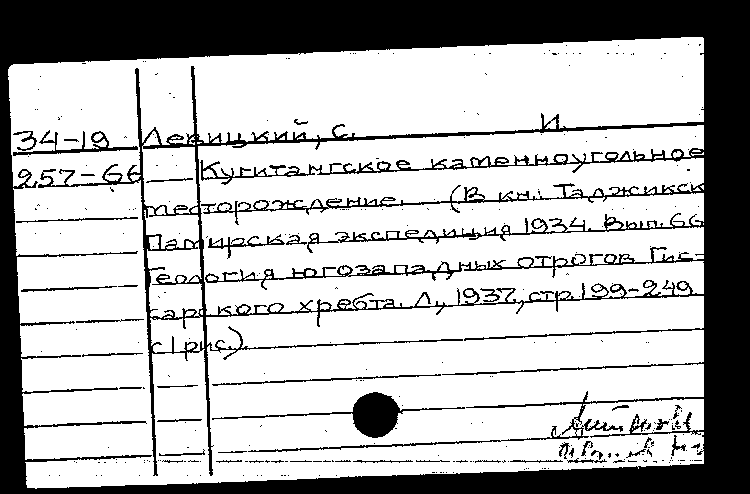 34-19 Левицкий, С. И.
257-66 Кугитангское каменноугольное
месторождение. (В кн.: Таджикск
Памирская экспедиция 1934. Вып. 66
Геология югозападных отрогов Гис-
сарского хребта. Л., 1937, стр. 199-249
с 1 рис.).